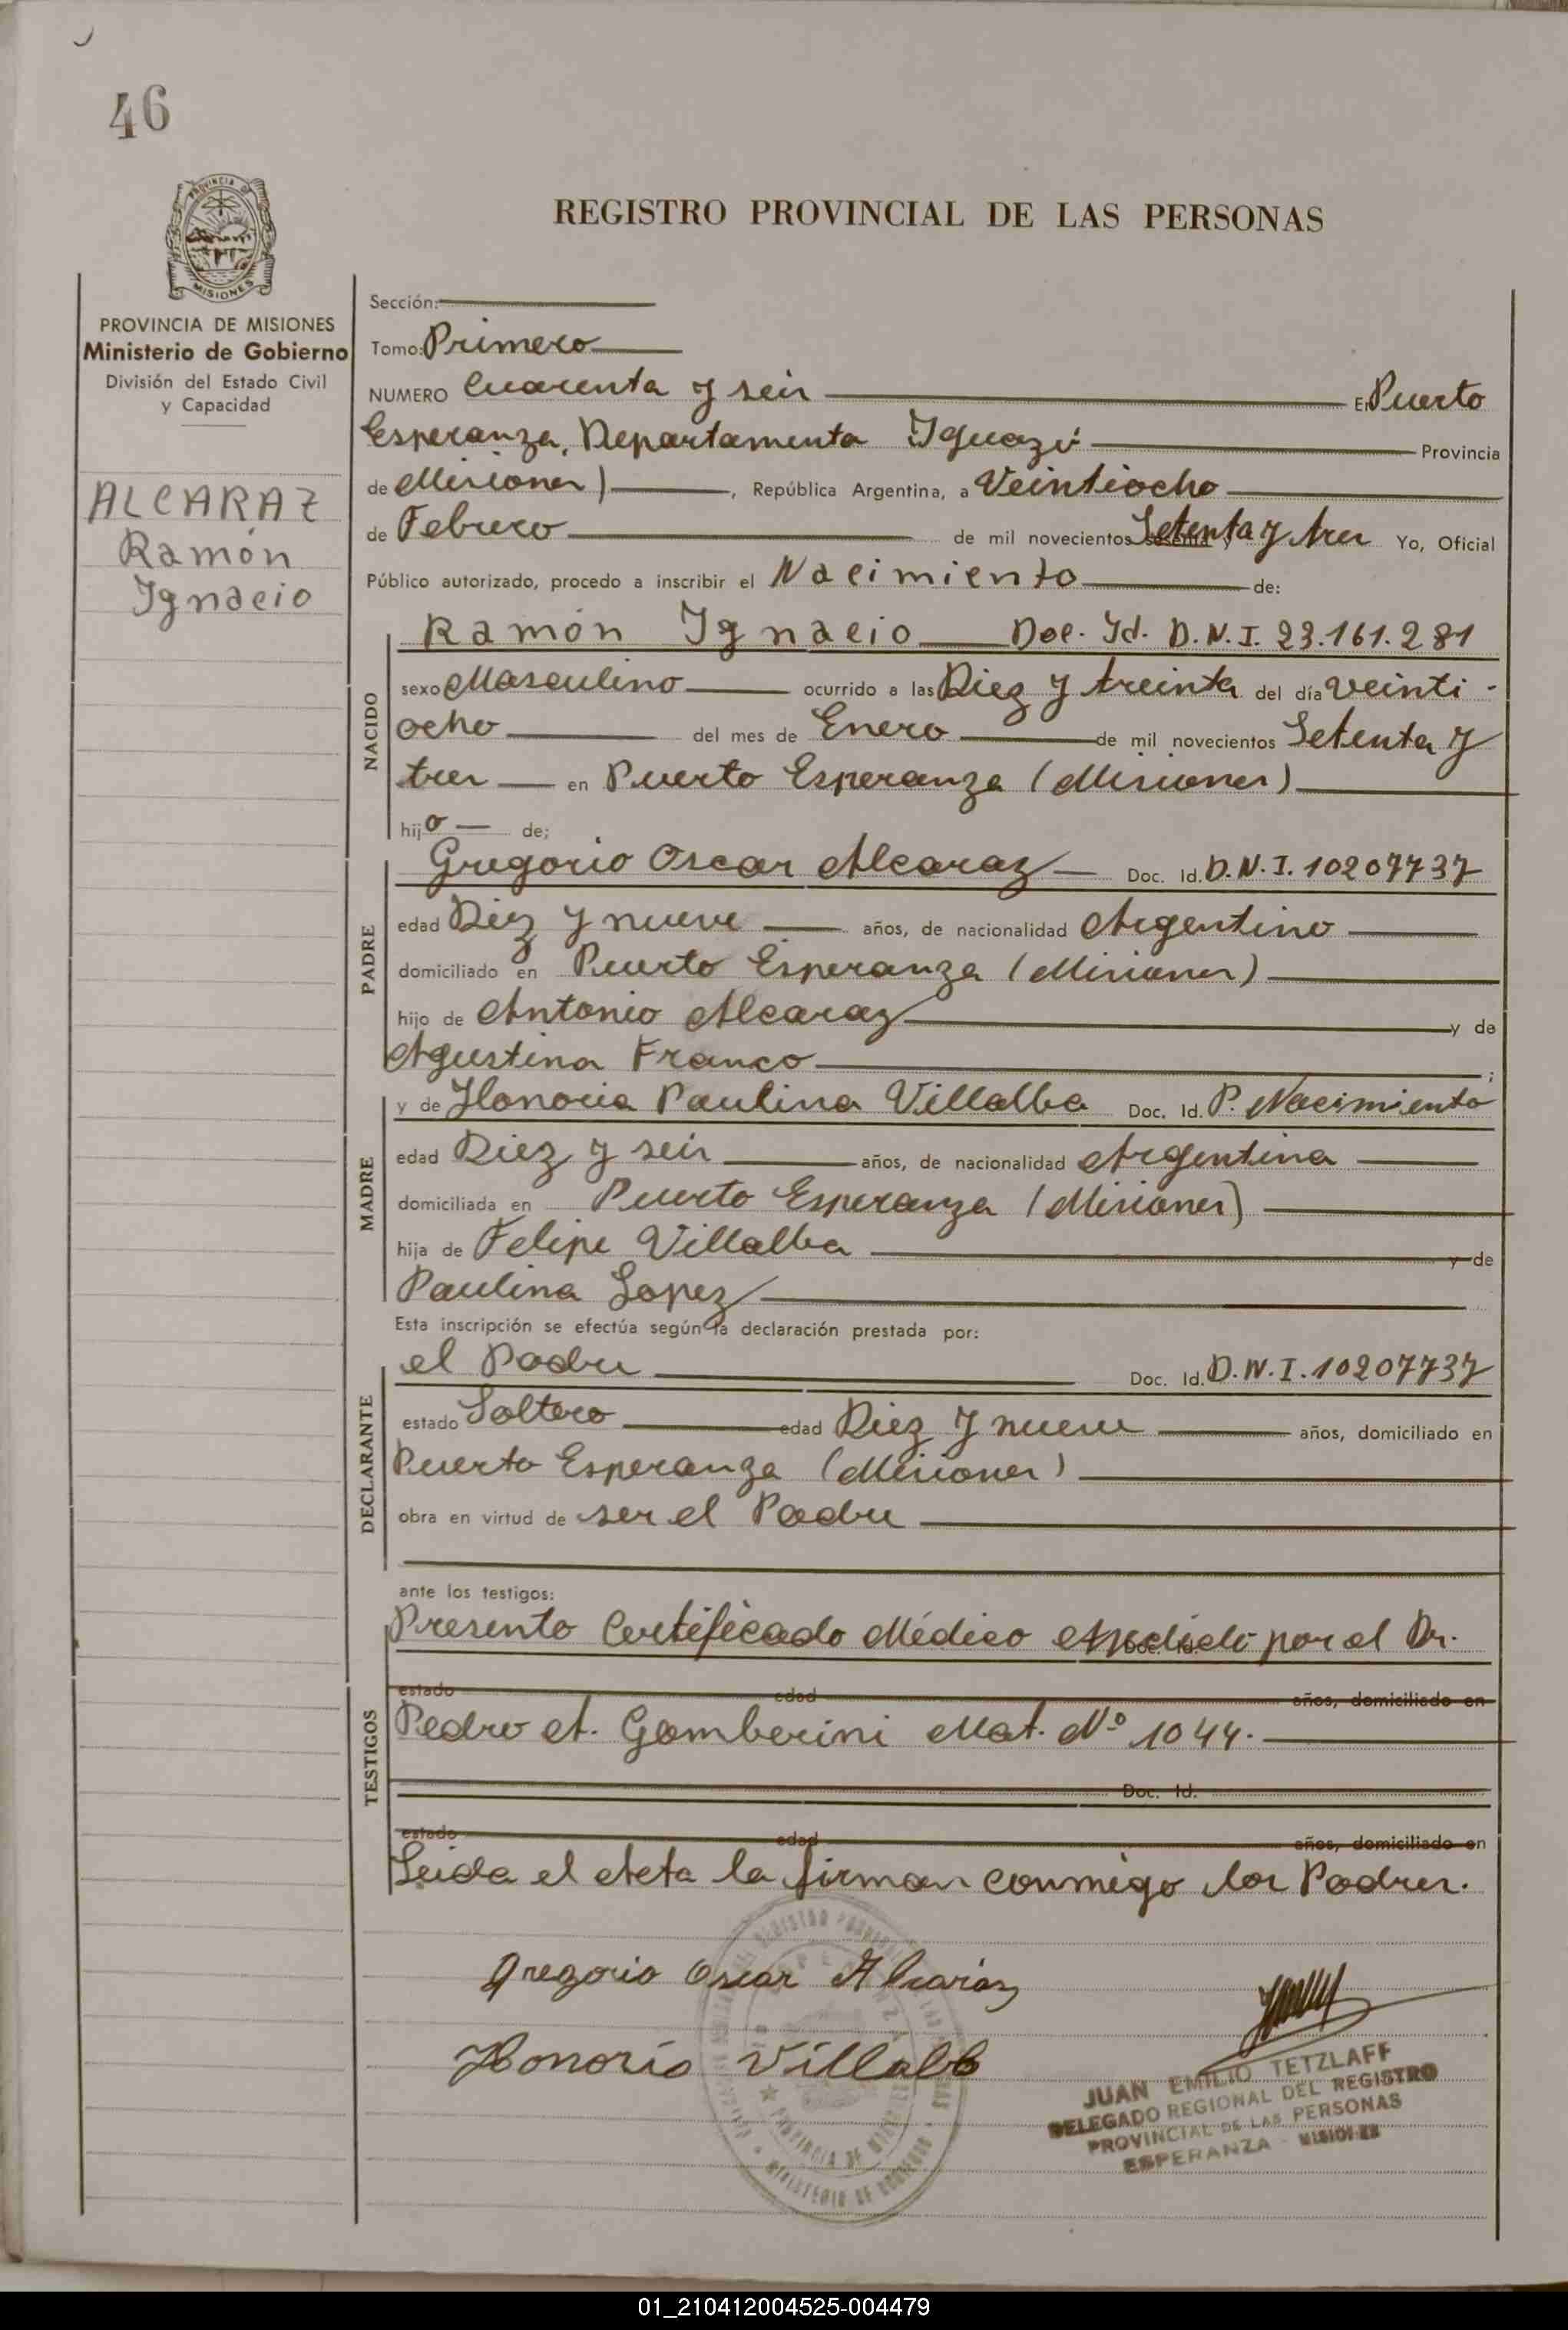 46
PROVINCIA DE
MISIONES
REGISTRO PROVINCIAL DE LAS PERSONAS
PROVINCIA DE MISIONES
Ministerio de Gobierno
División del Estado Civil
y Capacidad
ALCARAZ
Ramón
Ignacio
Sección:
Tomo: Primero
NUMERO Cuarenta y seis En Puerto
Esperanza, Departamento Iguazú Provincia
de Misiones), República Argentina, a Veintiocho
de Febrero de mil novecientos Setenta y tres Yo, Oficial
Público autorizado, procedo a inscribir el Nacimiento de:
NACIDO
Ramón Ignacio Doc. Id. D.N.I. 23.161.281
sexo Masculino ocurrido a las Diez y treinta del día veinti-
ocho del mes de Enero de mil novecientos Setenta y
tres en Puerto Esperanza (Misiones)
hijo de;
PADRE
Gregorio Oscar Alcaraz Doc. Id. D.N.I. 10207737
edad Diez y nueve años, de nacionalidad Argentino
domiciliado en Puerto Esperanza (Misiones)
hijo de Antonio Alcaraz y de
Agustina Franco ;
MADRE
y de Honoria Paulina Villalba Doc. Id. P. Nacimiento
edad Diez y seis años, de nacionalidad Argentina
domiciliada en Puerto Esperanza (Misiones)
hija de Felipe Villalba y de
Paulina Lopez
Esta inscripción se efectúa según la declaración prestada por:
DECLARANTE
el Padre Doc. Id. D.N.I. 10207737
estado Soltero edad Diez y nueve años, domiciliado en
Puerto Esperanza (Misiones)
obra en virtud de ser el Padre
ante los testigos:
TESTIGOS
Presento Certificado Médico expedido por el Dr.
estado edad años, domiciliado en
Pedro A. Gamberini Mat. Nº 1044.
Doc. Id.
estado edad años, domiciliado en
Leida el Acta la firman conmigo los Padres.
Gregorio Oscar Alcaraz
Honoria Villalb
JUAN EMILIO TETZLAFF
DELEGADO REGIONAL DEL REGISTRO
PROVINCIAL DE LAS PERSONAS
ESPERANZA - MISIONES
01_210412004525-004479